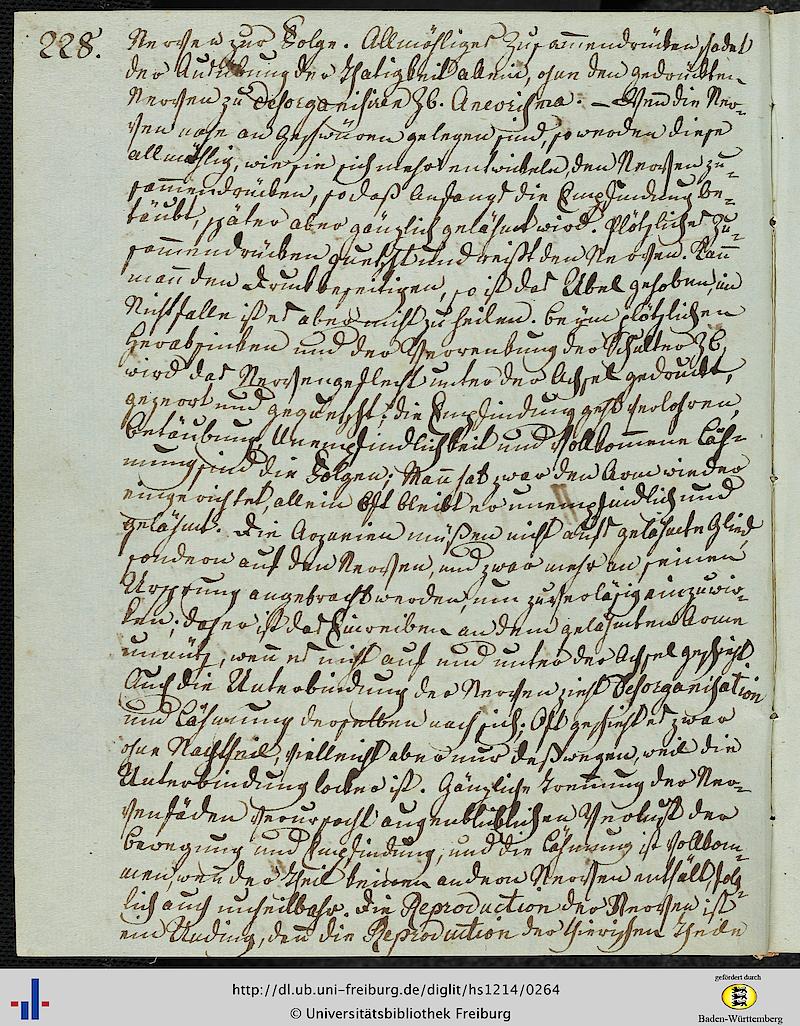 228.
Nerven zur Folge. Allmähliges Zusammendrücken, sadet
der Ausübung der Thatigkeit allein, ohne den gedrückten
Nerven zu desorganisiren Zb. Aneorisma. – Wenn die Ner-
ven nahe an Geschwüren gelegen sind, so werden diese
allmählig, wie sie sich mehr entwickeln, den Nerven zu-
sammendrücken, so daß Anfangs die Empfindung be-
täubt, später aber gänzlich gelähmt wird. Plötzliches Zu-
sammendrücken quetscht und reißt den Nerven. Kann
mann den Druck beseitigen, so ist das Übel gehoben, im
Nichtfalle ist es aber nicht zu heilen. beÿm plötzlichen
Herabsinken und der Verrenkung der Schulter Zb.
wird das Nervengeflecht unter der Achsel gedruckt,
gezerrt und gequetscht; die Empfindung geht verlohren,
betäubung, Unempfindlichkeit und vollkommene Läh-
mung sind die Folgen; Mann hat zwar den Arm wieder
eingerichtet, allein oft bleibt er unempfindlich und
gelähmt. Die Arzneien müßen nicht aufs gelähmte Glied,
sondern auf den Nerven, und zwar mehr an seinen
Ursprung angebracht werden, um zuverläßig einzuwir-
ken; daher ist das Einreiben an dem gelähmten Arme
unnütz, wenn es nicht auf und unter der Achsel geschieht
Auch die Unterbindung der Nerven zieht Desorganisation
und Lähmung derselben nach sich; Oft geschieht es zwar
ohne Nachtheil, vielleicht aber nur deßwegen, weil die
Unterbindung locker ist. Gänzliche Trennung der Ner-
venfäden verursacht augenbliklichen Verlust der
bewegung und Empfindung, und die Lähmung ist vollkom-
men, wen der Theil keinen andern Nerven enthält, folg-
lich auch unheilbahr. Die Reproduction der Nerven ist
ein Unding, denn die Reproduction der thierischen Theile
http://dl.ub.uni-freiburg.de/diglit/hs1214/0264
© Universitätsbibliothek Freiburg
gefördert durch
Baden-Württemberg